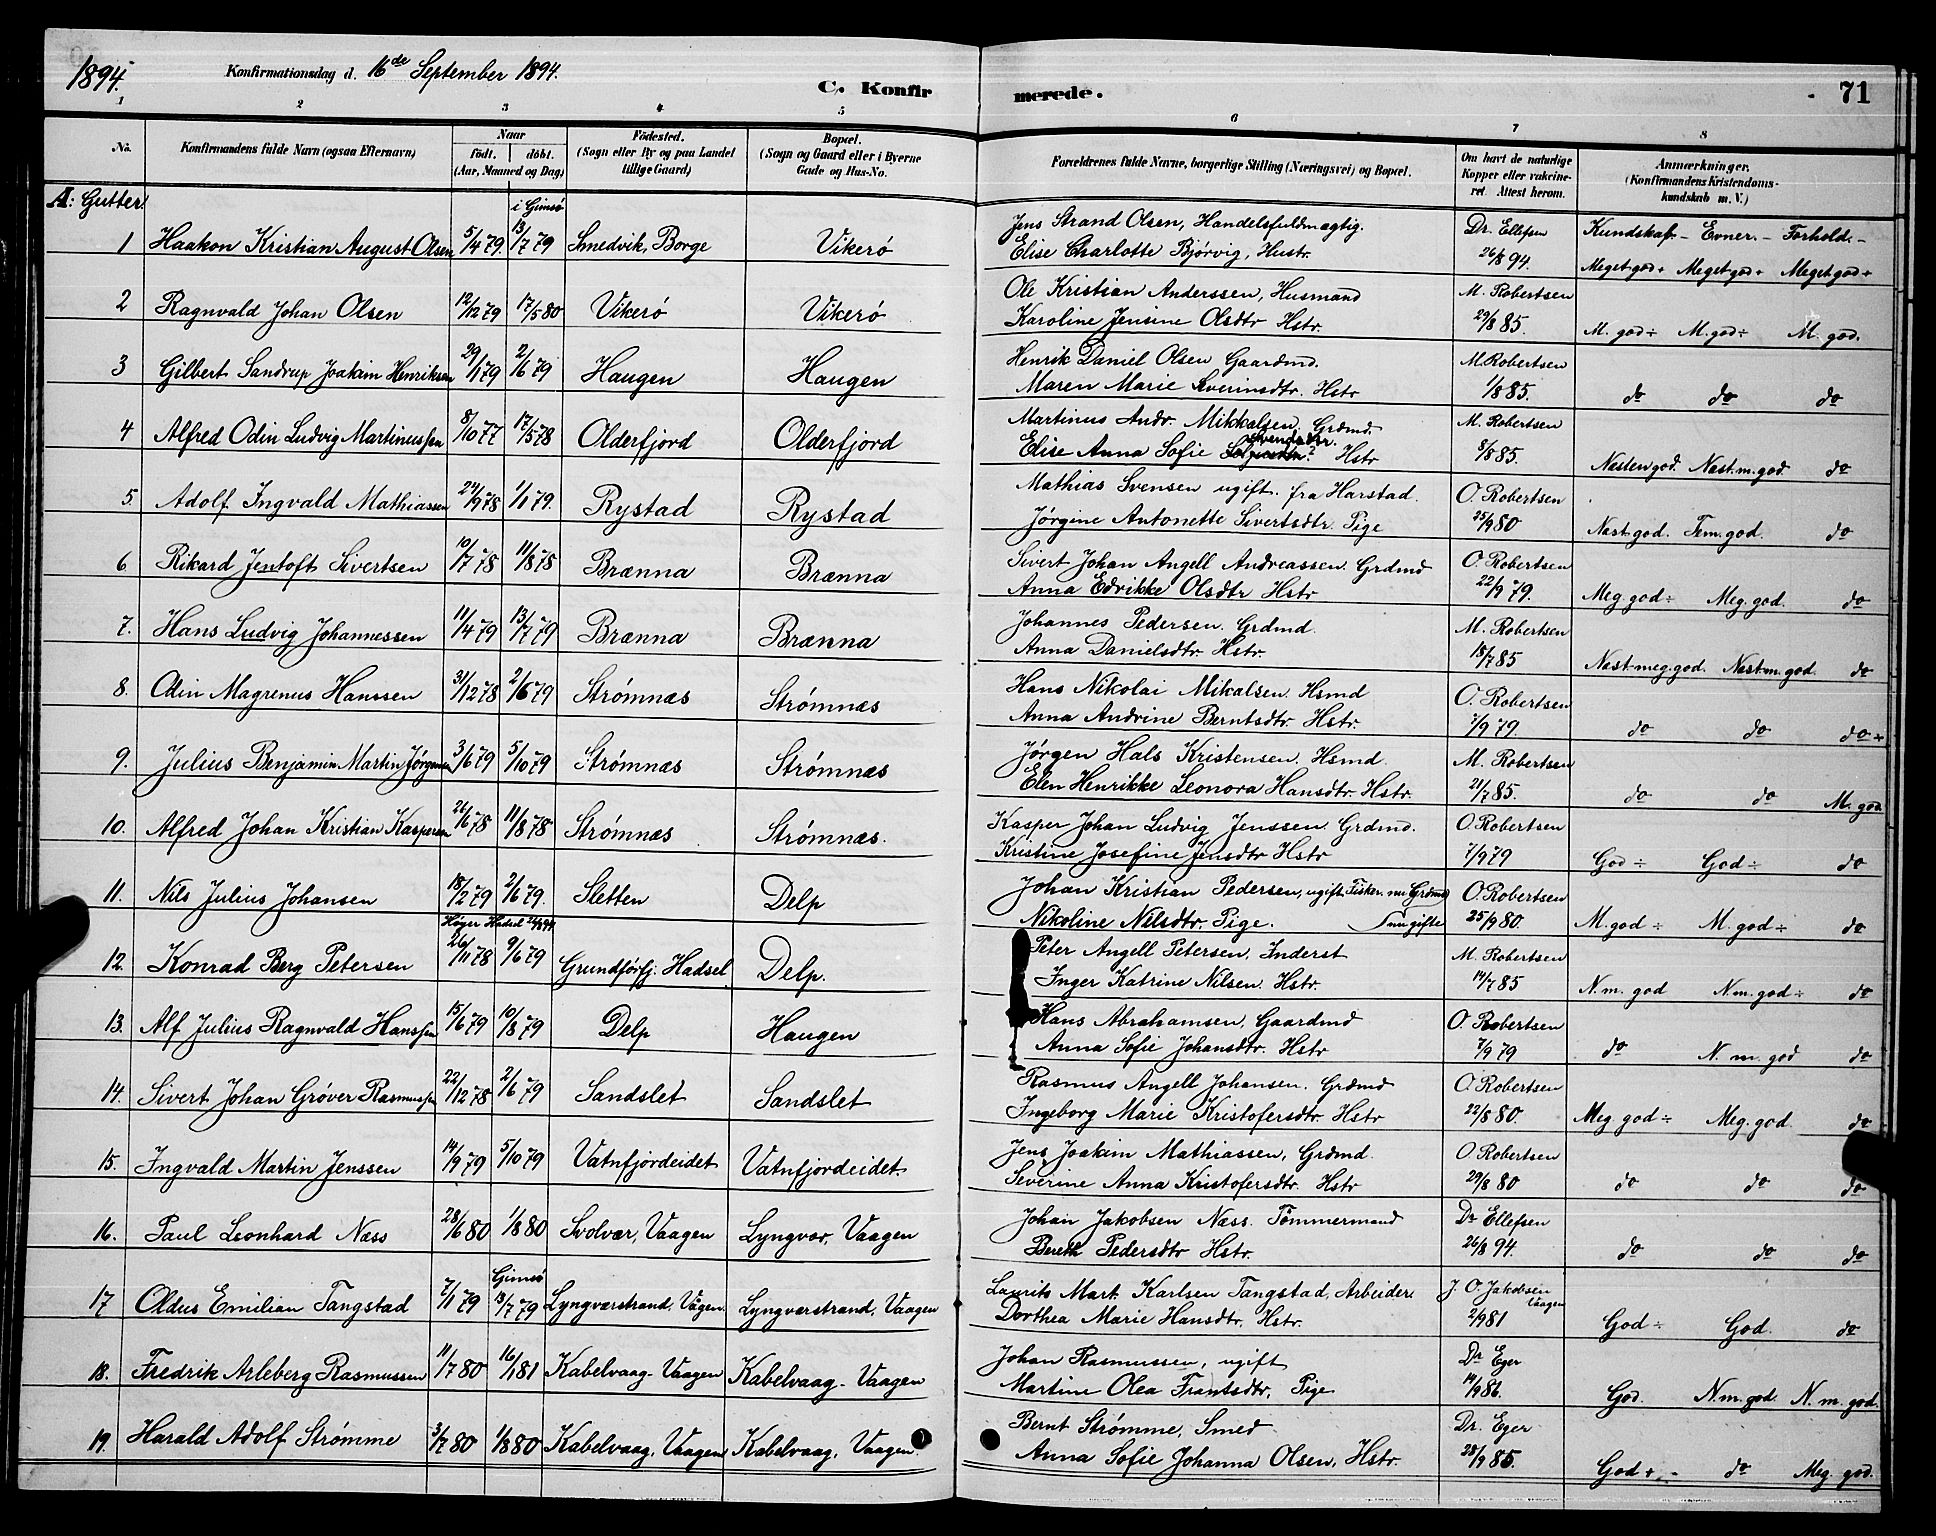 1894. Konfirmationsdag d. 16de September 1894. C. Konfirmerede. 71
1 2 3 4 5 6 7 8
No. Konfirmandens fulde Navn (ogsaa Efternavn) Naar födt. döbt. (Aar, Maaned og Dag) Födested. (Sogn eller By og paa Landet tillige Gaard) Bopæl. (Sogn og Gaard eller i Byerne Gade og Hus-No. Forældrenes fulde Navne, borgerlige Stilling (Næringsvei) og Bopæl. Om havt de naturlige Kopper eller vakcineret. Attest herom. Anmærkninger. (Konfirmandens Kristendomskundskab m. V.)
A: Gutter.
i Gimsø
1 Haakon Kristian August Olsen 5/4 79. 13/7 79 Smedvik, Borge Vikerö Jens Strand Olsen, Handelsfuldmægtig. Dr. Ellefsen Kundskab - Evner. - Forhold. -
Elise Charlotte Bjørvig, Hustr. 26/8 94. Meget god + Meget god + Meget god +
2 Ragnvald Johan Olsen 12/12 79 17/5 80 Vikerö Vikerö Ole Kristian Anderssen, Husmand M. Robertsen
Karoline Jensine Olsdtr Hstr. 29/8 85. M. god ÷ M. god ÷ M. god.
3 Gilbert Sandrup Joakim Henriksen 29/1 79 2/6 79 Haugen Haugen Henrik Daniel Olsen Gaardmd. M. Robertsen
Maren Marie Severinsdtr. Hstr 1/8 85. do do do
4 Alfred Odin Ludvig Martinussen 8/10 77 17/5 78 Olderfjord Olderfjord Martinus Andr. Mikkalsen, Grdmd. M. Robertsen
Elise Anna Sofie Hstr 8/8 85. Nesten god. Næst. m. god. do
5. Adolf Ingvald Mathiassen 24/9 78 1/1 79. Rystad Rystad Mathias Svensen ugift. fra Harstad. O. Robertsen
Jørgine Antonette Sivertsdtr. Pige 25/9 80 Næst god. Tem. god. do
6 Rikard Jentoft Sivertsen 10/7 78 11/8 78 Brænna Brænna Sivert Johan Angell Andreassen. Grdmd O. Robertsen
Anna Edrikke Olsdtr Hstr 22/9 79. Meg. god ÷ Meg. god. do
7. Hans Ludvig Johannessen 11/4 79 13/7 79 Brænna Brænna Johannes Pedersen. Grdmd. M. Robertsen
Anna Danielsdtr. Hstr. 18/7 85 Næst meg. god. Næst m. god. do
8. Odin Magrenus Hanssen 31/12 78 2/6 79 Strømnæs Strømnæs Hans Nikolai Mikalsen. Hsmd O. Robertsen
Anna Andrine Berntsdtr. Hstr. 7/9 79. do do do +
9. Julius Benjamin Martin Jørgensen 3/6 79 5/10 79 Strømnæs Strømnæs Jørgen Hals Kristensen. Hsmd. M. Robertsen
Elen Henrikke Leonora Hansdtr. Hstr. 21/7 85. do do M. god
10. Alfred Johan Kristian Kaspersen 26/6 78 11/8 78 Strømnæs Strømnæs. Kasper Johan Ludvig Jenssen. Grdmd. O. Robertsen
Kristine Josefine Jensdtr Hstr 7/9 79 God ÷ God ÷ do
11. Nils Julius Johansen 18/2 79 2/6 79. Sletten Delp Johan Kristian Pedersen, ugift. Fisker. nu Grdmd O. Robertsen
Nikoline Nilsdtr. Pige. nu gifte 25/9 80. M. god ÷ M. god ÷ do
12. Konrad Berg Petersen 26/11 78 9/6 79 Grundförfj. Hadsel Delp. Peter Angell Petersen, Inderst M. Robertsen
Inger Katrine Nilsen. Hstr. 14/7 85 N. m. god N. m. god ÷ do
13. Alf Julius Ragnvald Hanssen 15/6 79 10/8 79 Delp Haugen Hans Abrahamsen, Gaardmd O. Robertsen
Anna Sofie Johansdtr. Hstr 7/9 79 do N. m. god do
14. Sivert Johan Grøver Rasmussen 22/12 78 2/6 79 Sandslet Sandslet Rasmus Angell Johansen. Grdmd O. Robertsen
Ingeborg Marie Kristofersdtr. Hstr 22/8 80. Meg. god ÷ Meg. god. do
15. Ingvald Martin Jenssen 14/9 79 5/10 79 Vatnfjordeidet Vatnfjordeidet. Jens Joakim Mathiassen, Grdmd. O. Robertsen
Severine Anna Kristofersdtr. Hstr 29/8 80 do do do
16. Paul Leonhard Næss 28/6 80 1/8 80 Svolvær, Vaagen Lyngvær, Vaagen Johan Jakobsen Næss. Tömmermand Dr Ellefsen
Bereth Pedersdtr Hstr. 26/8 94. do do do
Gimsø
17 Oldus Emilian Tangstad 7/1 79 13/7 79 Lyngværstrand, Vågen. Lyngværstrand, Vaagen Laurits Mart. Karlsen Tangstad, Arbeider. J. O. Jakobsen Vaagen
Dorthea Marie Hansdtr. Hstr. 2/9 81 God ÷ God. do
18. Fredrik Arleberg Rasmussen 11/7 80 16/1 81 Kabelvaag - Vaagen Kabelvaag - Vaagen Johan Rasmussen, ugift Dr Eger
Martine Olea Frantsdtr, Pige 14/9 86. God. N. m. god. N. m. god.
19. Harald Adolf Strømme 3/7 80 1/8 80 Kabelvaag, Vaagen Kabelvaag, Vaagen. Bernt Strømme, Smed Dr. Eger
Anna Sofie Johanna Olsen, Hstr. 28/9 85. God + - do Meg. god.